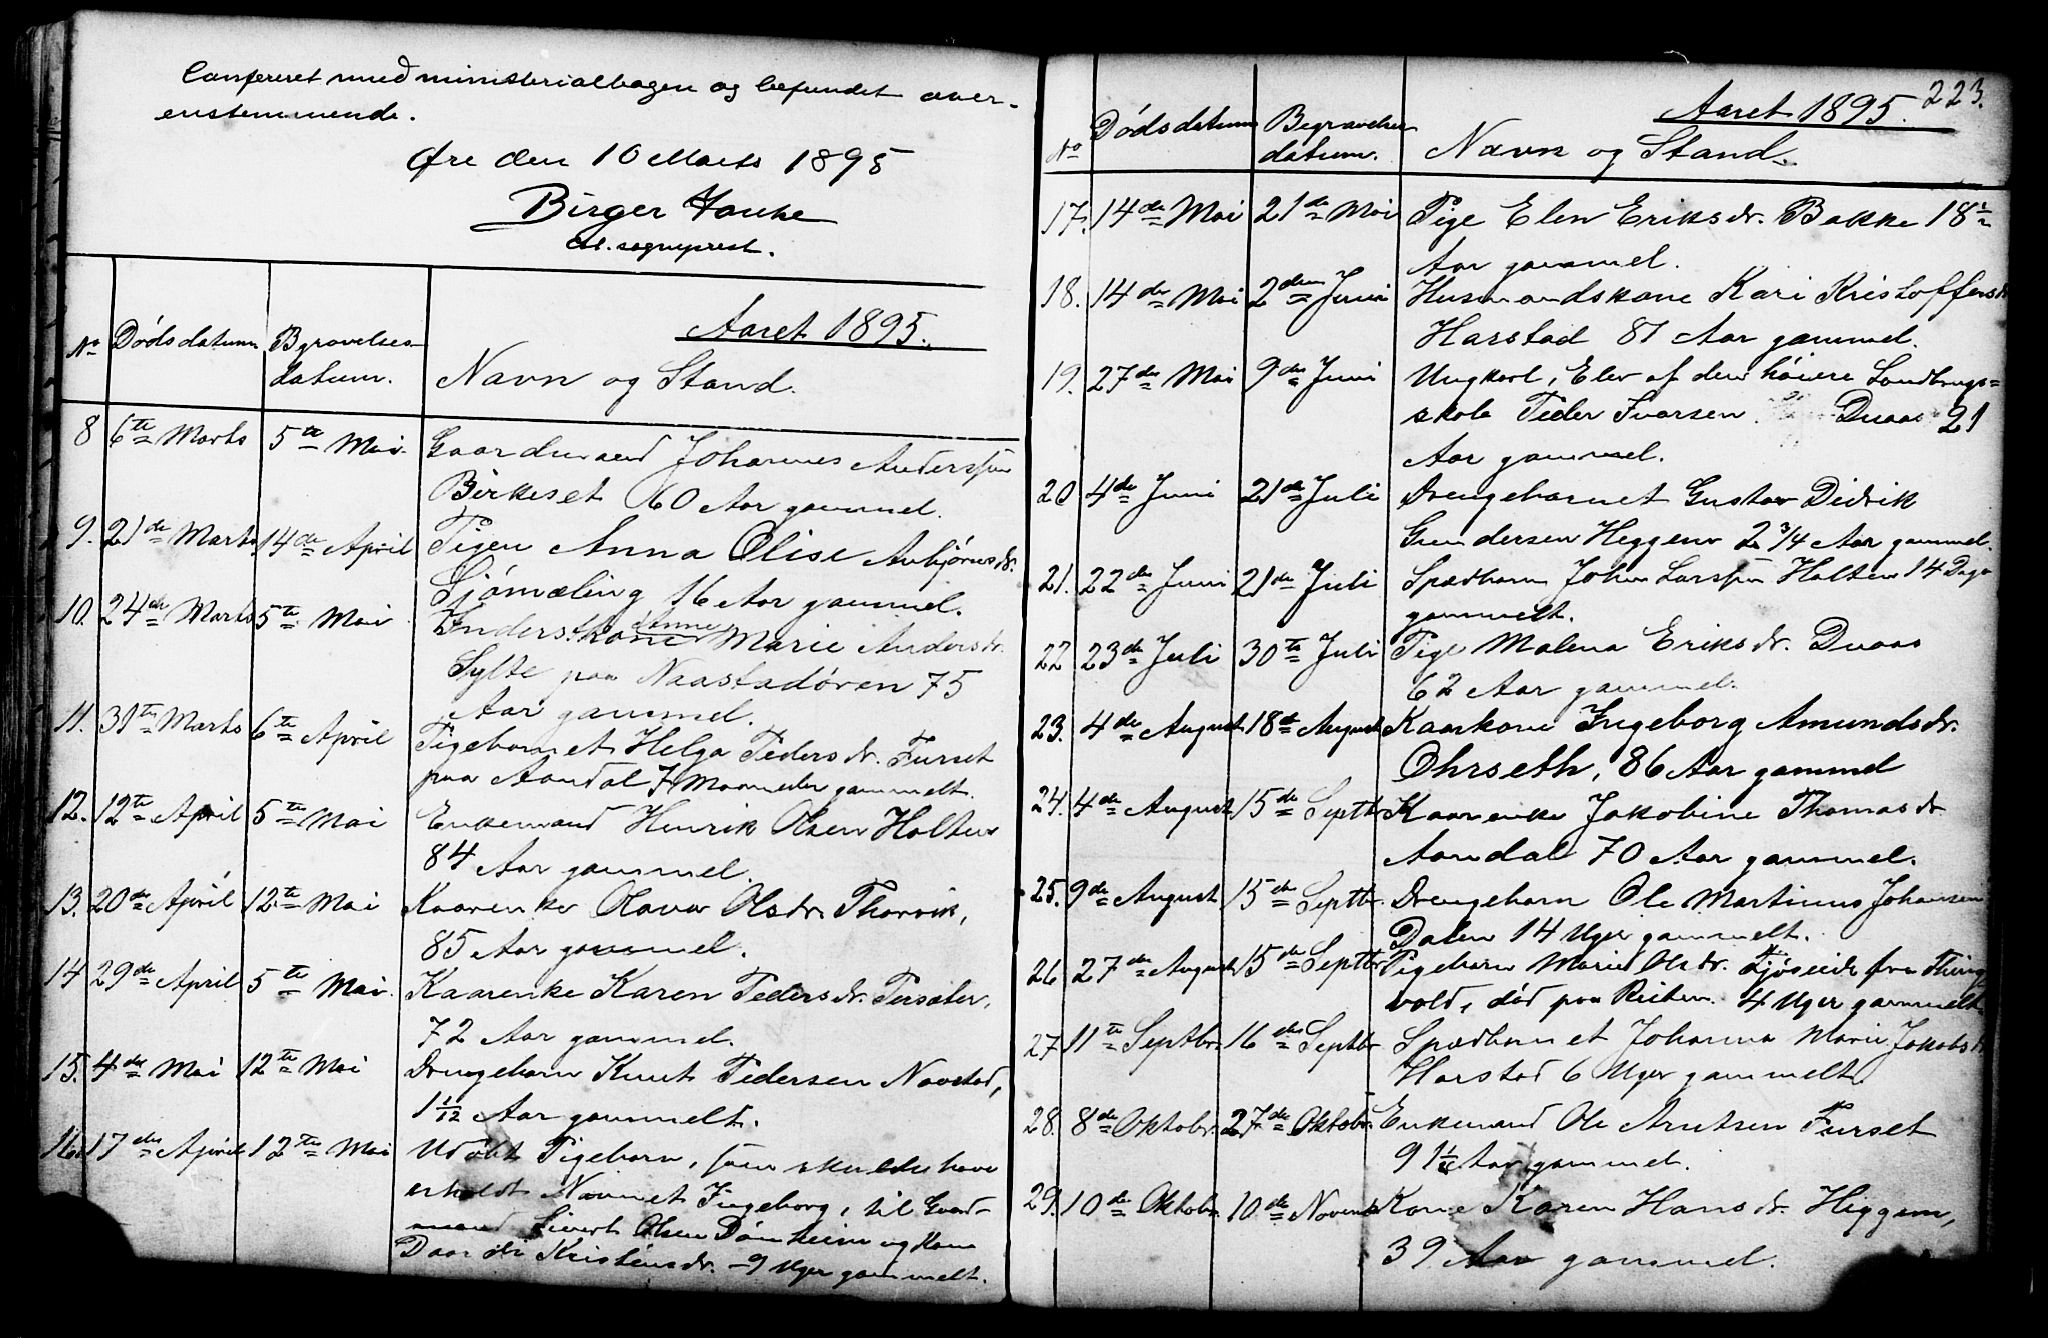 Confereret med ministerialbogen og befundet over-
ensstemmende.
Øre den 10 Marts 1895
Birger Hauke
cst. sogneprest.
Aaret 1895.
No Dødsdatum Bgravelses-
datum. Navn og Stand.
8 6te Marts 5te Mai. Gaardmand Johannes Anderssen
Birkeset 60 Aar gammel.
9. 21de Marts 14de April Pigen Anna Olise Anbjørnsdr.
Sjømæling 16 Aar gammel.
10. 24de Marts 5te Mai Inderstkone Anne Marie Andersdr.
Sylte paa Naastadøren 75
Aar gammel.
11. 31te Marts 6te April Pigebarnet Helga Pedersdr. Furset
paa Aandal 7 Maaneder gammelt.
12. 12te April 5te Mai Enkemand Henrik Olsen Holten
84 Aar gammel.
13. 20de April 12te Mai Kaarenke Olava Olsdr. Thorvik,
85 Aar gammel.
14 29de April 5te Mai. Kaarenke Karen Pedersdr. Persæter,
72 Aar gammel.
15. 4de Mai 12te Mai Drengebarn Knut Pedersen Navstad,
1 1/12 Aar gammelt.
16. 17de April 12te Mai Udøbt Pigebarn, som skulde have
erholdt Navnet Ingeborg, til Gaard-
mand Sivert Olsen Dømheim og Kone
Kristensdr. - 9 Uger gammelt.
223.
Aaret 1895.
No Dødsdatum Begravelses
datum. Navn og Stand.
17. 14de Mai 21de Mai Pige Elen Eriksdr. Bakke 18 1/2
Aar gammel.
18. 14de Mai 2den Juni Husmandskone Kari Kristoffersdr
Harstad 81 Aar gammel.
19. 27de Mai 9de Juni Ungkarl, Elev af den høiere Landbrugs=
skole Peder Ivarsen Duaas 21
Aar gammel.
20 4de Juni 21de Juli Drengebarnet Gustav Didrik
Gundersen Heggem 2 3/4 Aar gammel.
21. 22de Juni 21de Juli Spædbarn Johan Larssen Holten 14 Dage
gammelt.
22 23de Juli 30te Juli Pige Malena Eriksdr. Duaas
62 Aar gammel.
23. 4de August 18de August Kaarkone Ingeborg Amundsdr.
Ohrseth, 86 Aar gammel
24. 4de August 15de Septbr Kaarenke Jakobine Thomasdr
Aandal 70 Aar gammel.
25. 9de August 15de Septbr. Drengebarn Ole Martinus Johansen
Dalen 14 Uger gammelt.
26 27de August 15de Septbr Pigebarn Marie Olsdr. Fjøseide fra Thing
vold, død paa Reiten. 4 Uger gammelt
27 11te Septbr. 16de Septbr Spædbarnet Johanna Marie Jakobsdr
Harstad 6 Uger gammelt.
28. 8de Oktobr. 27de Oktobr. Enkemand Ole Arntsen Furset
91 1/2 Aar gammel.
29. 10de Oktobr. 10de Novemb. Kone Karen Hansdr. Heggem,
39 Aar gammel.